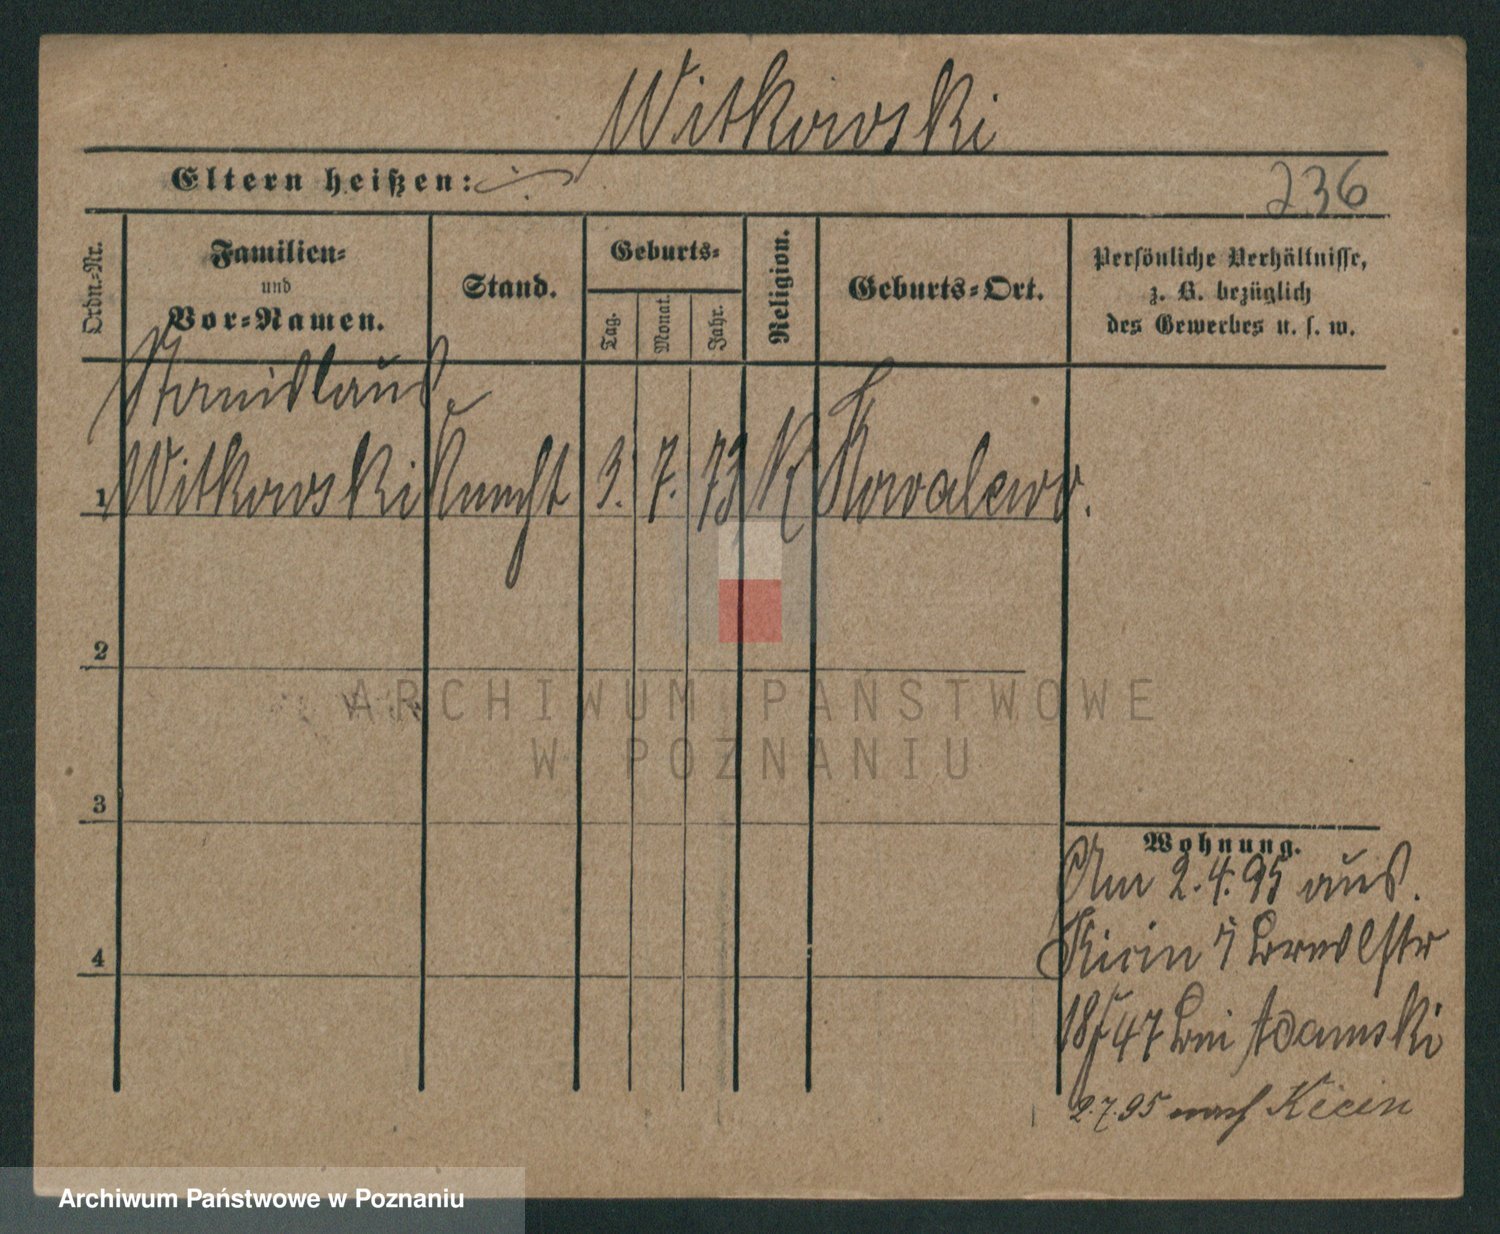 Witkowski
Eltern heißen: ·/·
236
Ordn.-Nr.
Familien-
und
Vor-Namen.
Stand.
Geburts-
Tag.
Monat.
Jahr.
Religion.
Geburts-Ort.
Persönliche Verhältnisse,
z. B. bezüglich
des Gewerbes u. s. w.
Stanislaus
1 Witkowski Knecht 3. 7. 73 K Kowalewo.
2
3
4
Wohnung.
Am 2.4.95 aus
Kicin
18/47 bei Adamski
2.7.95 nach Kicin
ARCHIWUM PAŃSTWOWE
W POZNANIU
Archiwum Państwowe w Poznaniu